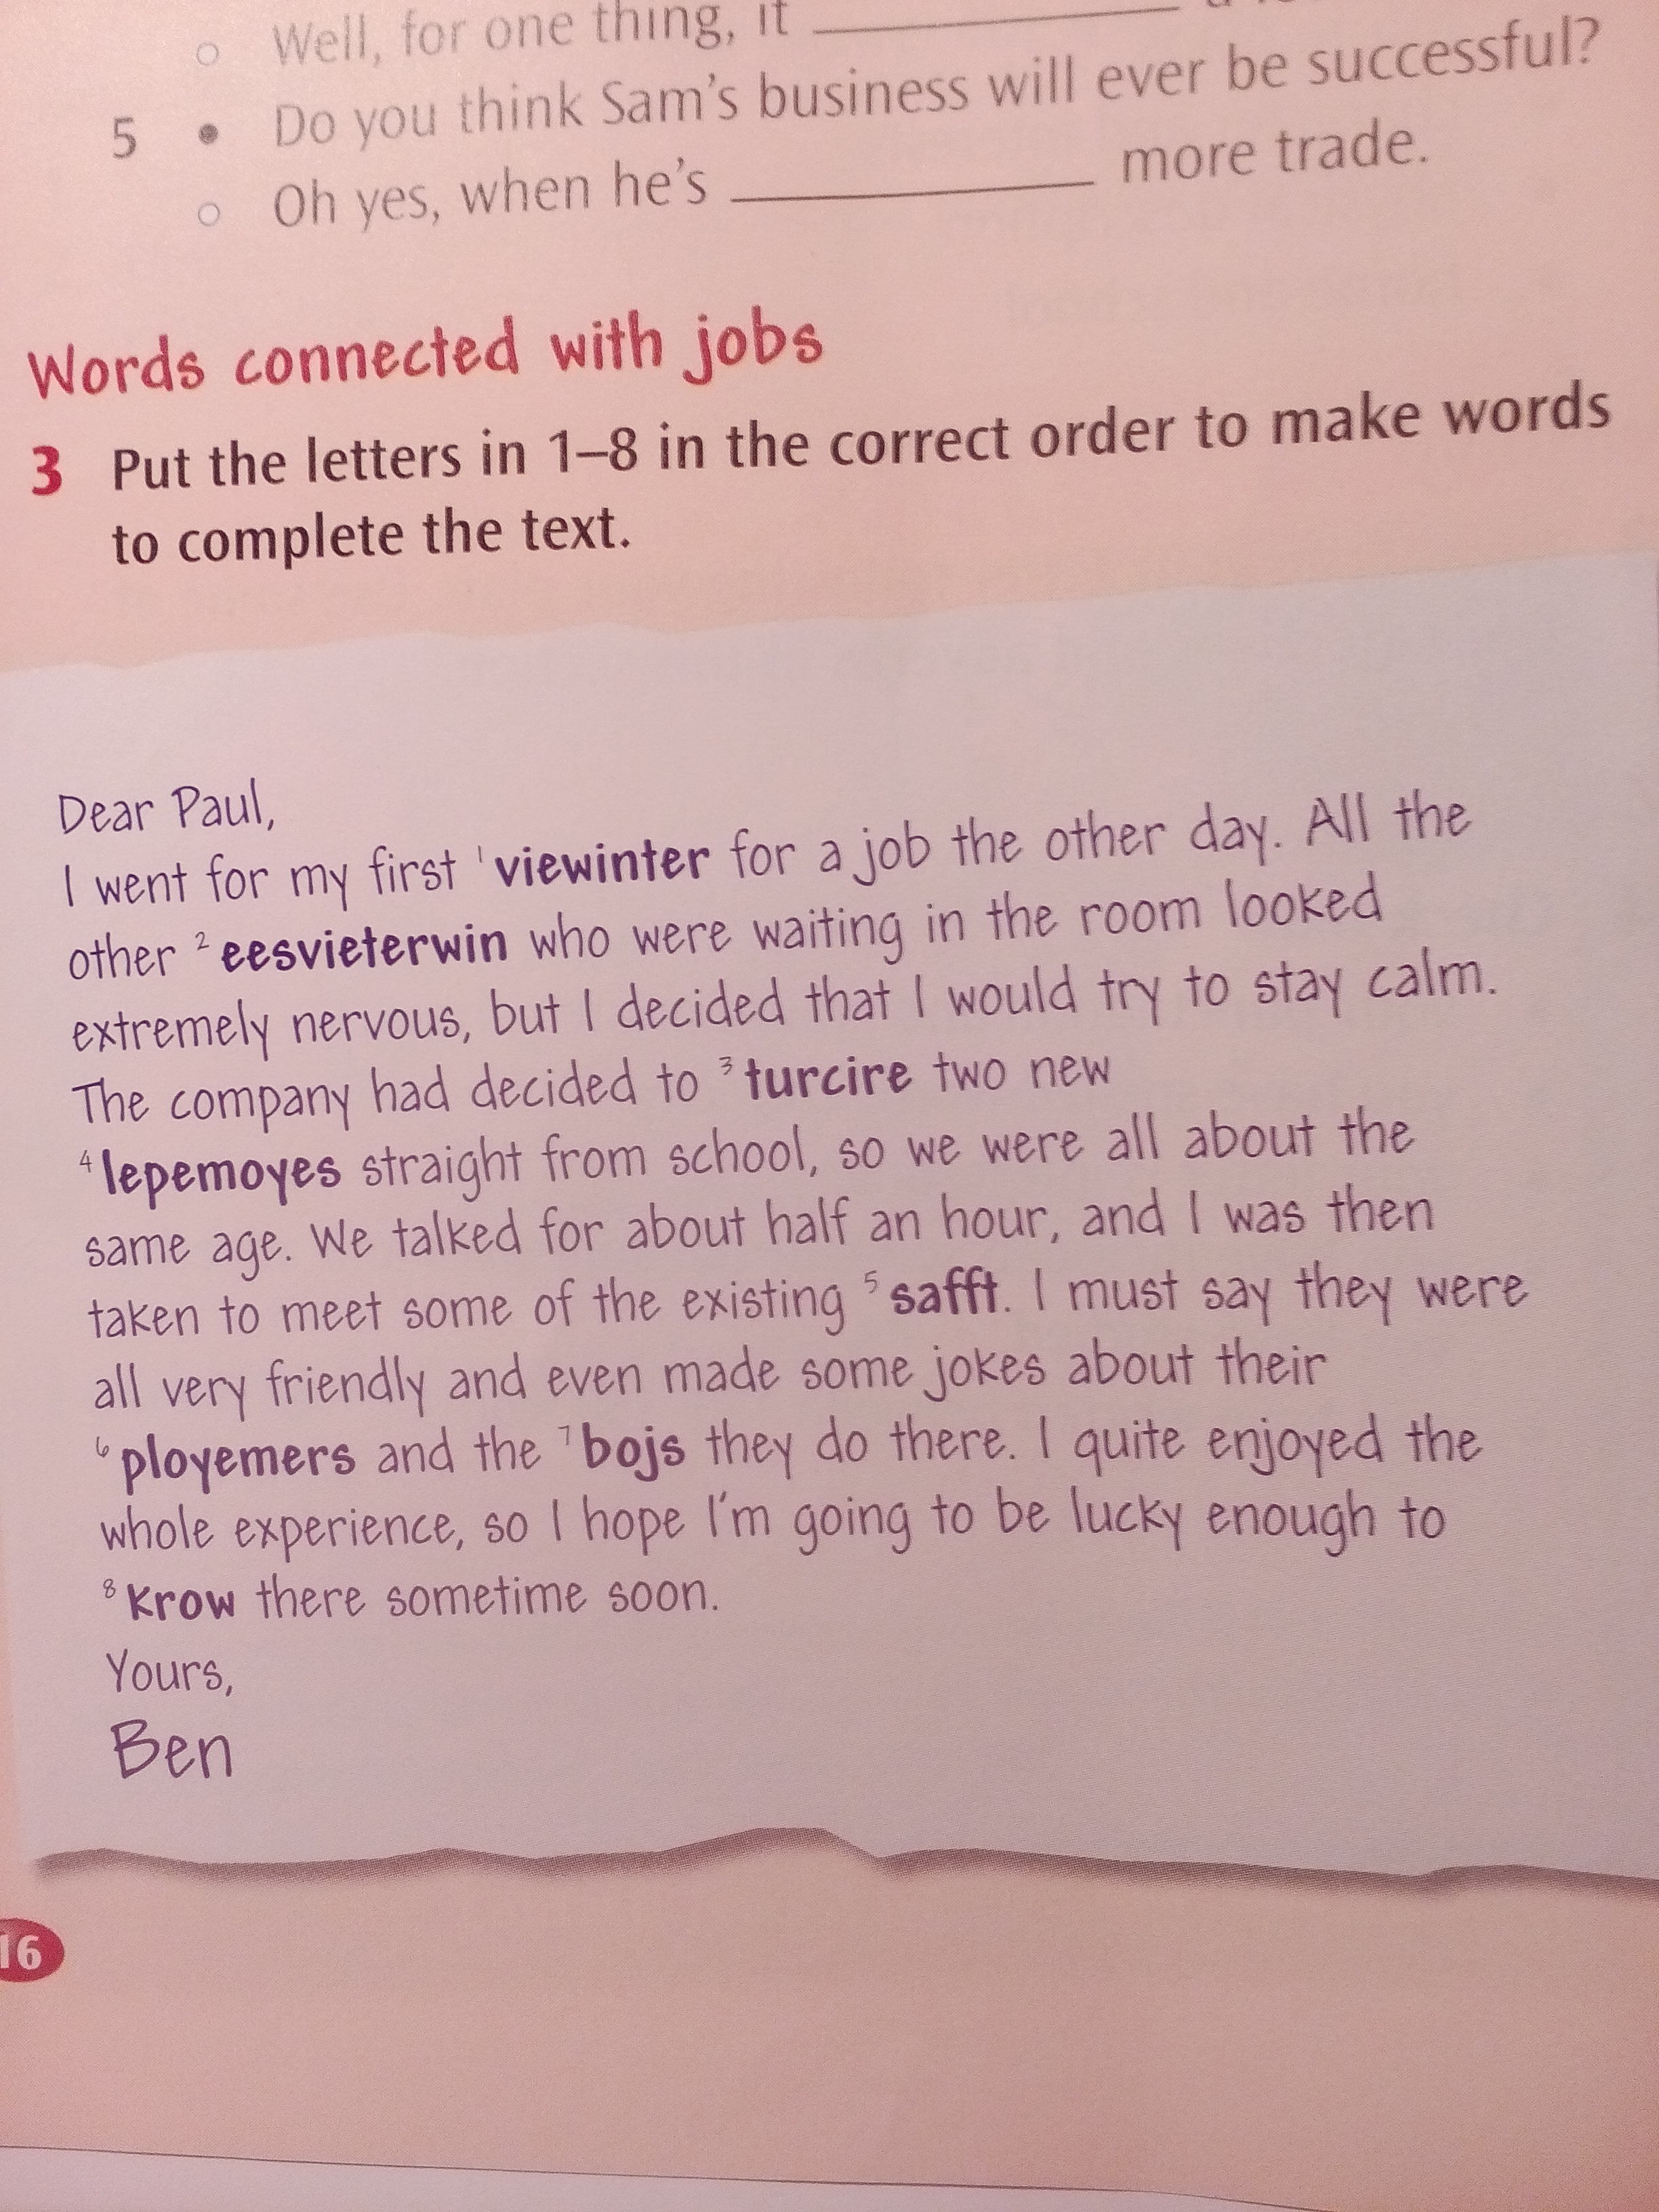 ○ Well, for one thing, it ____________
5 ● Do you think Sam's business will ever be successful?
○ Oh yes, when he's ____________ more trade.
Words connected with jobs
3 Put the letters in 1–8 in the correct order to make words
to complete the text.
Dear Paul,
I went for my first ¹viewinter for a job the other day. All the
other ²eesvieterwin who were waiting in the room looked
extremely nervous, but I decided that I would try to stay calm.
The company had decided to ³turcire two new
⁴lepemoyes straight from school, so we were all about the
same age. We talked for about half an hour, and I was then
taken to meet some of the existing ⁵safft. I must say they were
all very friendly and even made some jokes about their
⁶ployemers and the ⁷bojs they do there. I quite enjoyed the
whole experience, so I hope I'm going to be lucky enough to
⁸krow there sometime soon.
Yours,
Ben
16